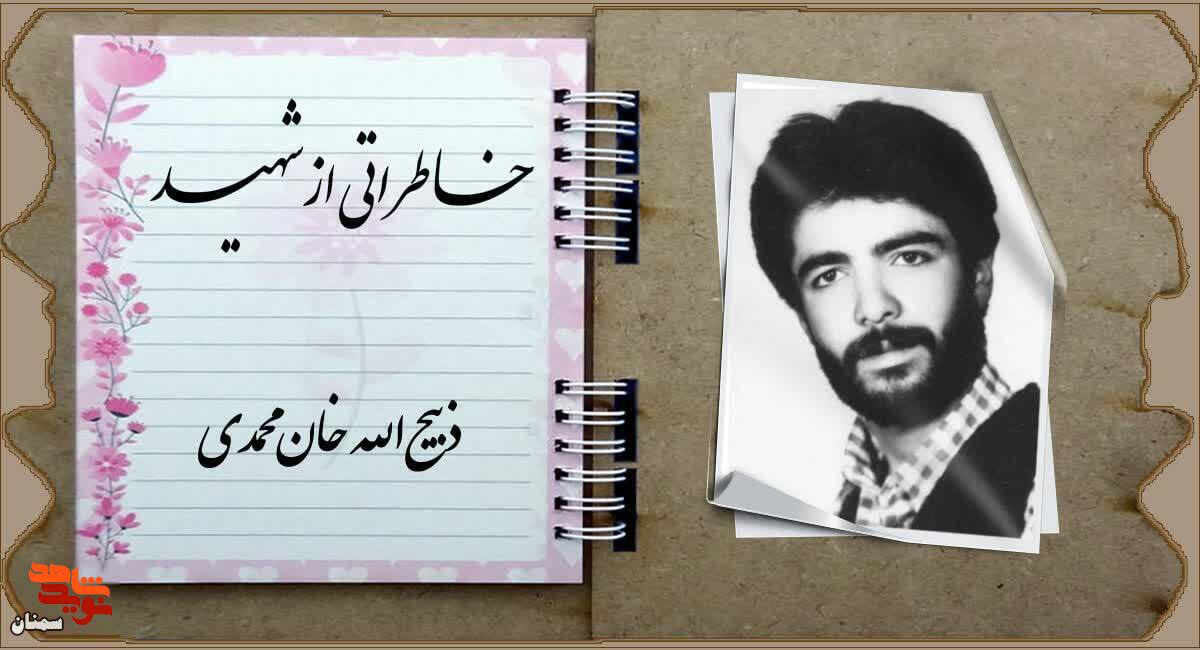 خاطراتی از شهید
ذبیح الله خان محمدی
نوید شاهد
سمنان